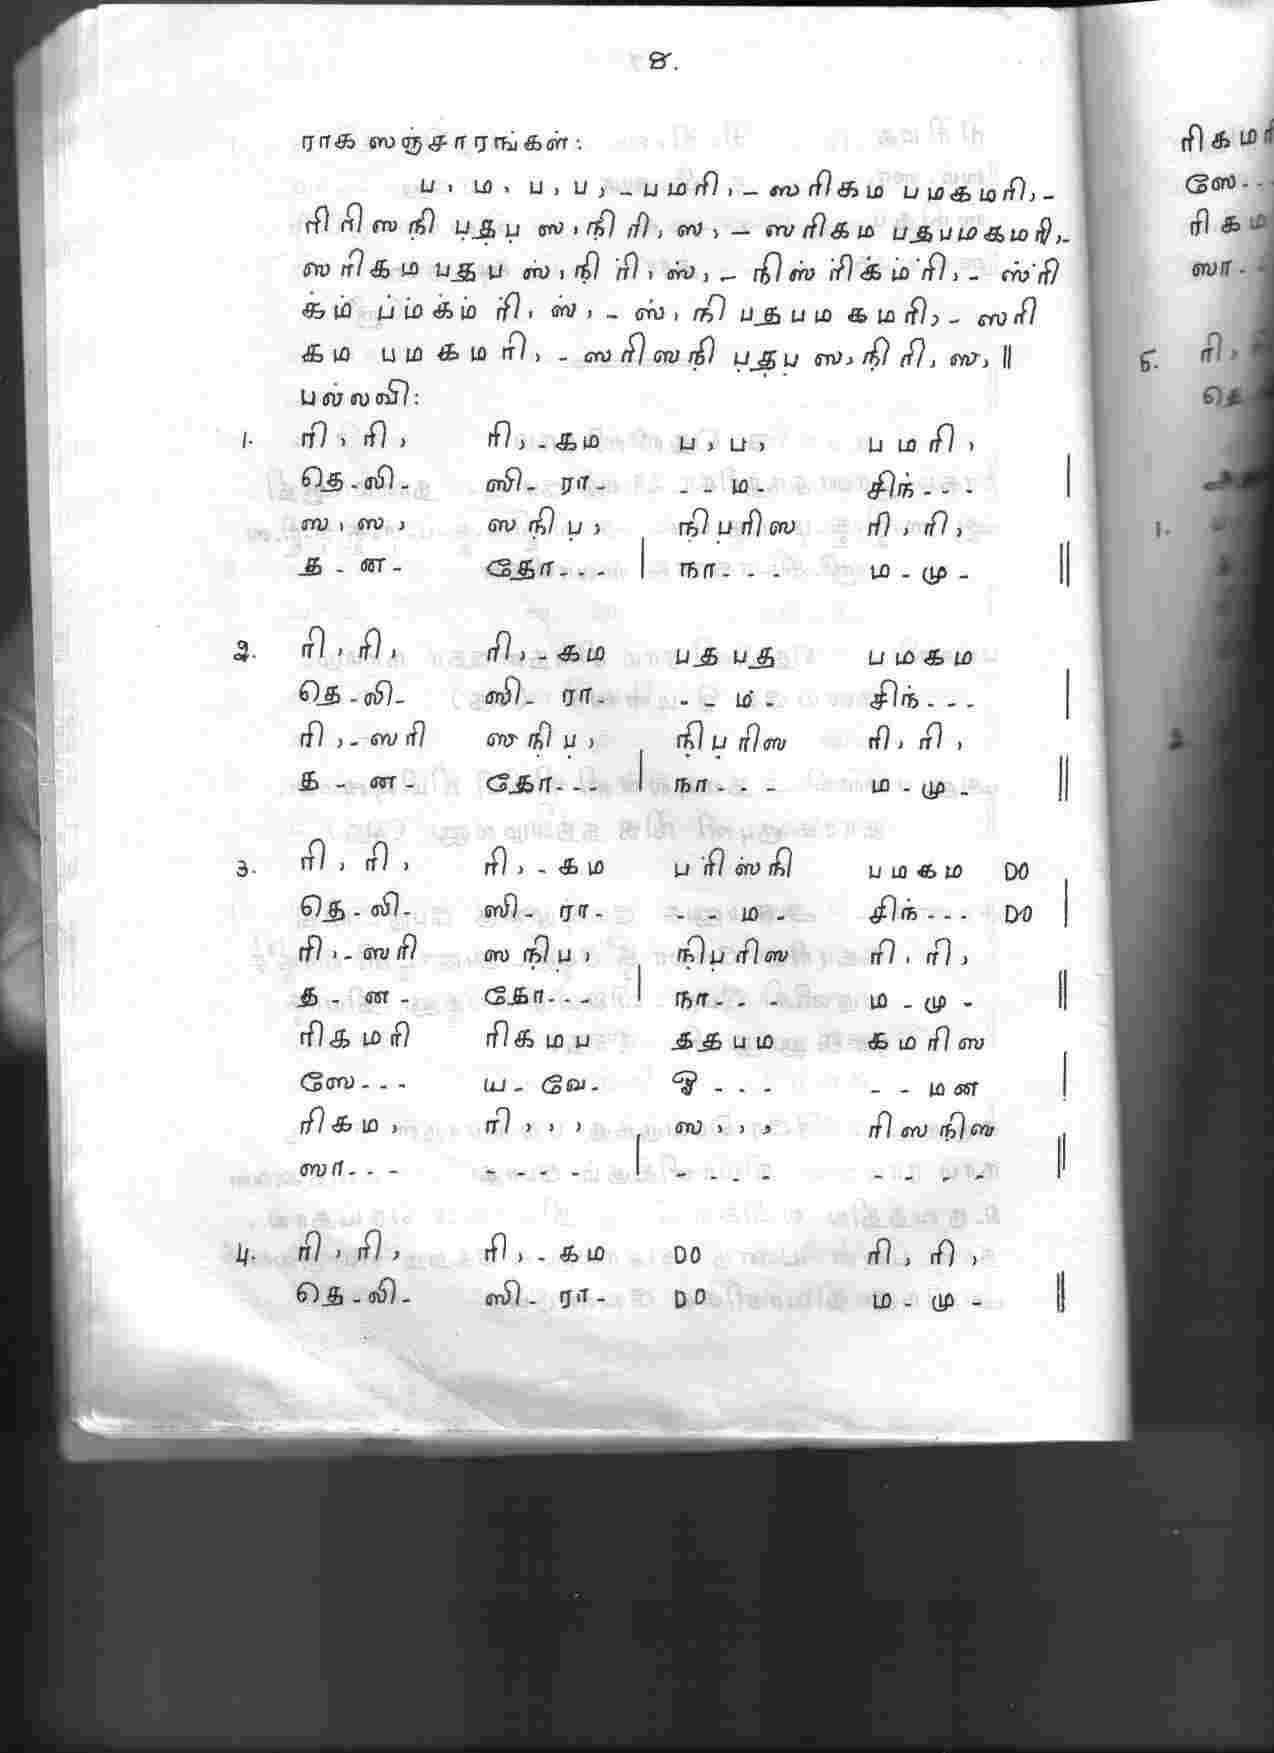 8.
ராக ஸஞ்சாரங்கள்:
ப , ம , ப , ப , - பமரி , - ஸரிகம பமகமரி , -
ரிரிஸநி பதப ஸ , நிரி , ஸ , - ஸரிகம பதபமகமரி , -
ஸரிகம பதப ஸ் , நிரி் , ஸ் , - நிஸ்ரி்க்ம்ரி் , - ஸ்ரி்
க்ம் ப்ம்க்ம் ரி் , ஸ் , - ஸ் , நி பதபம கமரி , - ஸரி
கம பமகமரி , - ஸரிஸநி பதப ஸ , நிரி , ஸ , ||
பல்லவி:
1. ரி , ரி , ரி , - கம ப , ப , பமரி ,
தெ - லி - ஸி - ரா - - - ம - சிந் - - - |
ஸ , ஸ , ஸநிப , நிபரிஸ ரி , ரி ,
த - ன - தோ - - - | நா - - - ம - மு - ||
2. ரி , ரி , ரி , - கம பதபத பமகம
தெ - லி - ஸி - ரா - - - ம் - சிந் - - - |
ரி , - ஸரி ஸநிப , நிபரிஸ ரி , ரி ,
த - ன - தோ - - - | நா - - - ம - மு - ||
3. ரி , ரி , ரி , - கம பரி்ஸ்நி பமகம DO
தெ - லி - ஸி - ரா - - - ம - சிந் - - - DO |
ரி , - ஸரி ஸநிப , நிபரிஸ ரி , ரி ,
த - ன - தோ - - - | நா - - - ம - மு - ||
ரிகமரி ரிகமப ததபம கமரிஸ
ஸே - - - ய - வே - ஓ - - - - - மன |
ரிகம , ரி , , , ஸ , , , ரிஸநிஸ
ஸா - - - - - - - | - - - - - - - - ||
4. ரி , ரி , ரி , - கம DO ரி , ரி ,
தெ - லி - ஸி - ரா - DO ம - மு - ||
ரிகமரி
ஸே - - -
ரிகம
ஸா - -
5. ரி ,
தெ -
1.
2.